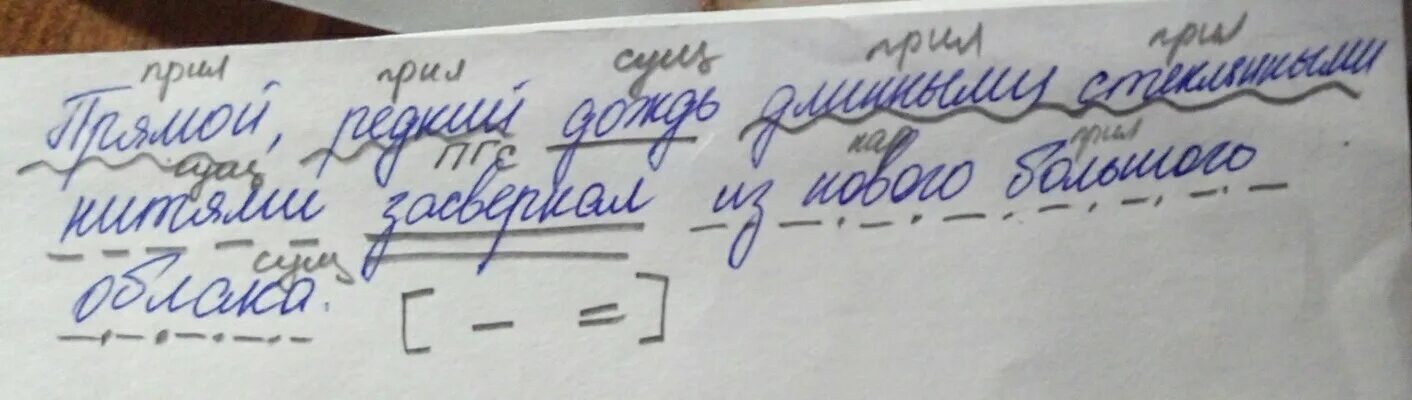 прил прил сущ прил прил
Прямой, редкий дождь длинными стеклянными
сущ ПГС прил
нитями засверкал из нового большого
сущ
облака. [ – = ]